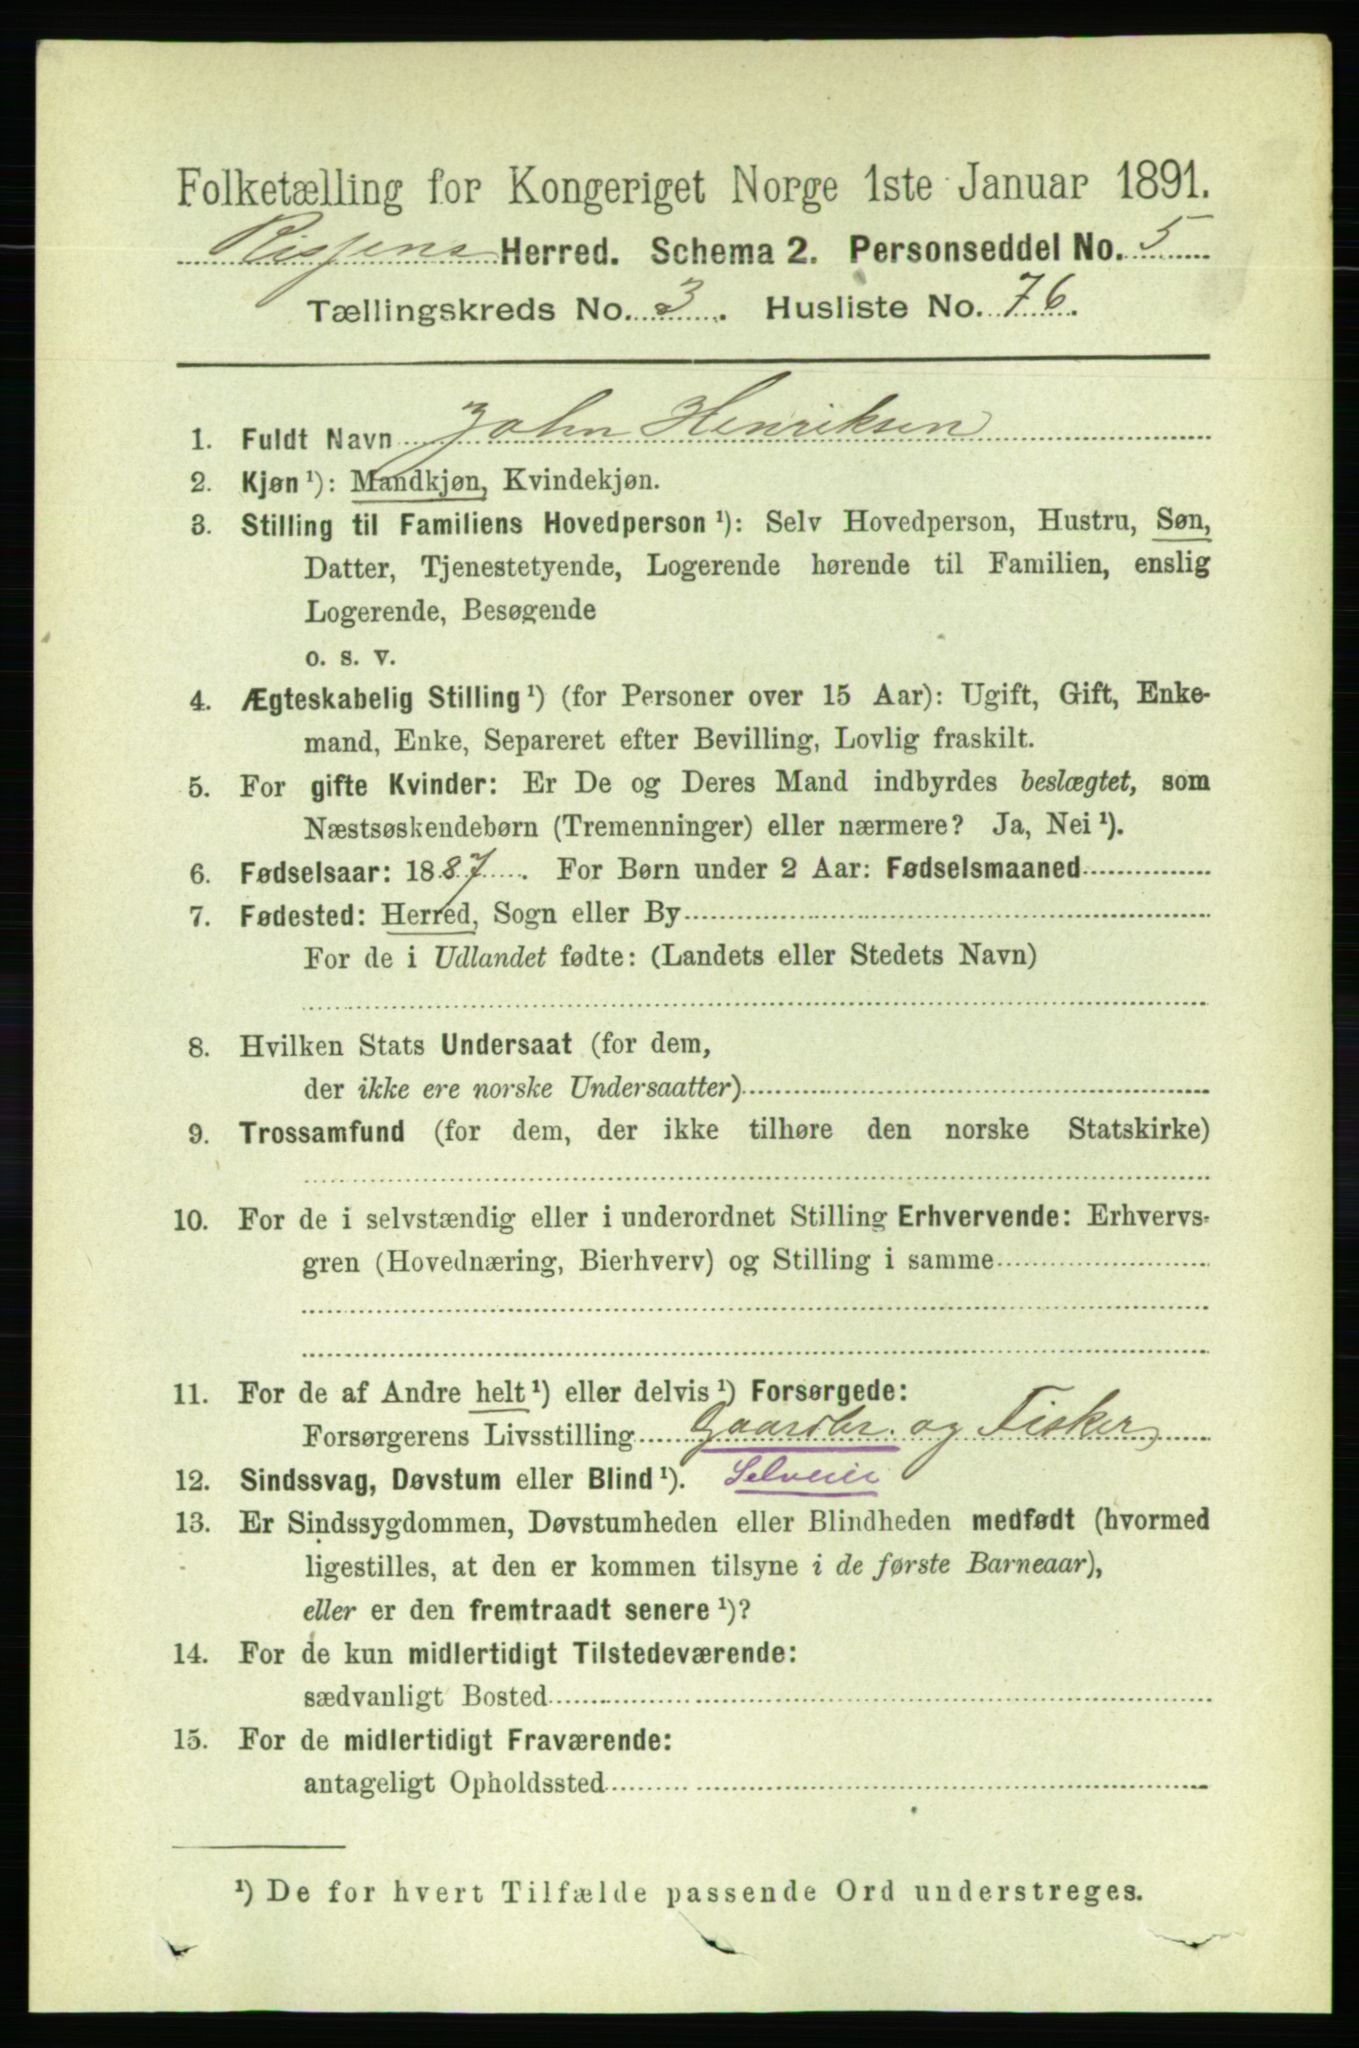 Folketælling for Kongeriget Norge 1ste Januar 1891.
Rissens Herred. Schema 2. Personseddel No. 5
Tællingskreds No. 3. Husliste No. 76.
1. Fuldt Navn John Henriksen
2. Kjøn ¹): Mandkjøn, Kvindekjøn.
3. Stilling til Familiens Hovedperson ¹): Selv Hovedperson, Hustru, Søn,
Datter, Tjenestetyende, Logerende hørende til Familien, enslig
Logerende, Besøgende
o. s. v.
4. Ægteskabelig Stilling ¹) (for Personer over 15 Aar): Ugift, Gift, Enke-
mand, Enke, Separeret efter Bevilling, Lovlig fraskilt.
5. For gifte Kvinder: Er De og Deres Mand indbyrdes beslægtet, som
Næstsøskendebørn (Tremenninger) eller nærmere? Ja, Nei ¹).
6. Fødselsaar: 1887. For Børn under 2 Aar: Fødselsmaaned
7. Fødested: Herred, Sogn eller By
For de i Udlandet fødte: (Landets eller Stedets Navn)
8. Hvilken Stats Undersaat (for dem,
der ikke ere norske Undersaatter)
9. Trossamfund (for dem, der ikke tilhøre den norske Statskirke)
10. For de i selvstændig eller i underordnet Stilling Erhvervende: Erhvervs-
gren (Hovednæring, Bierhverv) og Stilling i samme
11. For de af Andre helt ¹) eller delvis ¹) Forsørgede:
Forsørgerens Livsstilling Gaardbr. og Fisker
12. Sindssvag, Døvstum eller Blind ¹). Selveier
13. Er Sindssygdommen, Døvstumheden eller Blindheden medfødt (hvormed
ligestilles, at den er kommen tilsyne i de første Barneaar),
eller er den fremtraadt senere ¹)?
14. For de kun midlertidigt Tilstedeværende:
sædvanligt Bosted
15. For de midlertidigt Fraværende:
antageligt Opholdssted
¹) De for hvert Tilfælde passende Ord understreges.